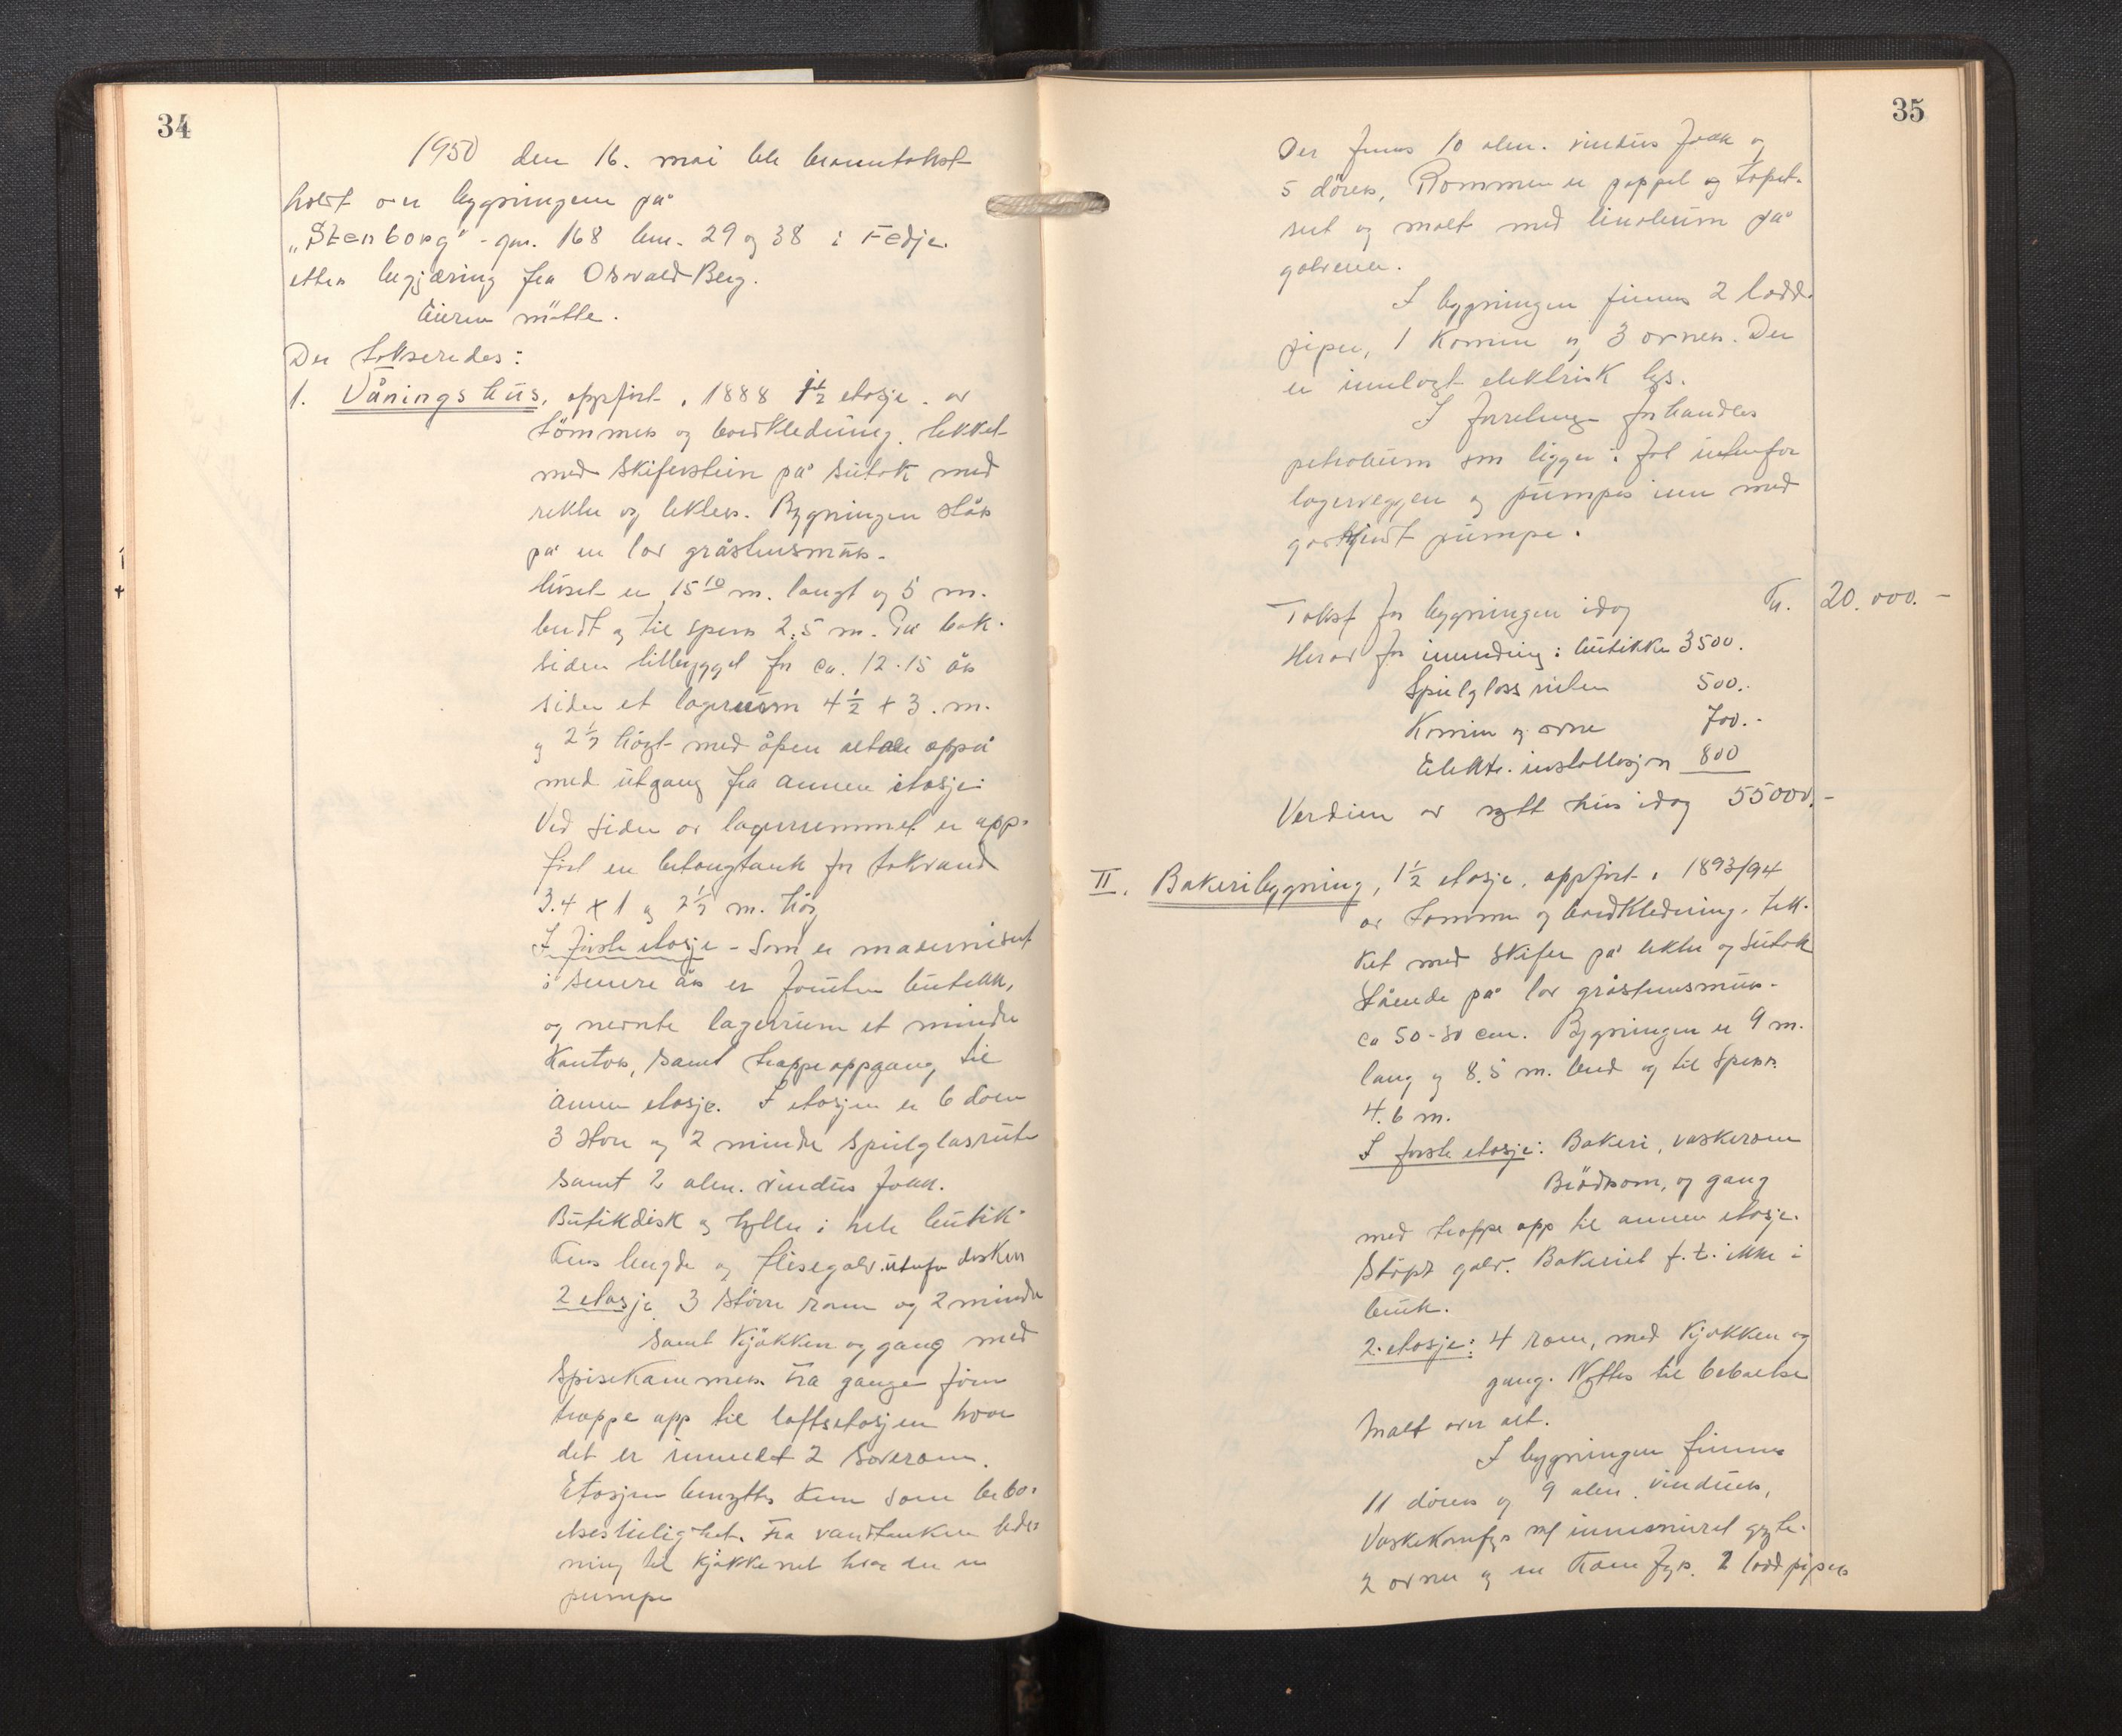 34
1950 den 16. mai ble branntakst
holdt over bygningene på
"Stenborg" - gnr. 168 bnr. 29 og 38 i Fedje.
etter begjæring fra Osvald Berg.
Eieren møtte.
Der takseredes:
1. Våningshus, oppført i 1888 1½ etasje. av
tömmer og bordkledning, tekket
med skiferstein på sutak med
rekter og lekter. Bygningen står
på en lav gråstensmur.
Huset er 15 10 m. langt og 5 m.
bredt og til sperr 2.5 m. På bak-
siden tilbygget for ca. 12-15 år
siden et lagerrum 4½ x 3. m.
og 2½ högt med åpen altan oppå
med utgang fra annen etasje.
Ved siden av lagerrummet er opp-
fört en betongtank for takvand
3.4 x 1 og 2½ m. høg
I første etasje - som er modernisert
i senere år er foruten butikk,
og nevnte lagerrum et mindre
Kontor, samt trappeoppgang til
annen etasje. I etasjen er 6 dører
3 store og 2 mindre speilglasruter
samt 2 alm. vindus fakk.
Butikdisk og hyller i hele butik-
kens lengde og flisegolv utenfor disken
2 etasje 3 större rom og 2 mindre
samt kjøkken og gang med
Spisekammer. Fra gangen fører
trappe opp til loftsetasjen hvor
det er innredet 2 soverom.
Etasjen benyttes kun som bebo-
elsesleilighet. Fra vandtanken led-
ning til kjøkkenet hvor der er
pumpe
35
Der finnes 10 alm. vindus fakk og
5 dörer, Rommene er pappet og tapet-
sert og malt med linoleum på
golvene.
I bygningen finnes 2 lodd-
piper, 1 Komin og 3 ovner. Der
er innlagt elektrisk lys.
I forretningen forhandles
petroleum som ligger i fat utenfor
lagerveggen og pumpes inn med
godkjendt pumpe.
Takst for bygningen idag Kr. 20.000.-
Herav for innredning: butikken 3500.
Speilglassruter 500.-
Komin og ovne 700.-
Elektr. installasjon 800
Verdien av nytt hus idag 55000.-
II. Bakeribygning, 1½ etasje, oppført i 1893/94
av tømmer og bordkledning, tek-
ket med skifer på lekter og sutak
stående på lav gråstensmur.
ca 50-80 cm. Bygningen er 9 m.
lang og 8.5 m. bred og til sperr.
4.6 m.
I første etasje: Bakeri, vaskerom
Brödrom, og gang
med trappe opp til annen etasje.
Støpt golv. Bakeriet f.t. ikke i
bruk.
2. etasje: 4 rom, med kjøkken og
gang. Nyttes til beboelse
Malt over alt.
I bygningen finnes
11 dörer og 9 alm. vinduer,
Vaskekomfyr m/ innemuret gryte.
2 ovner og en komfyr. 2 loddpiper